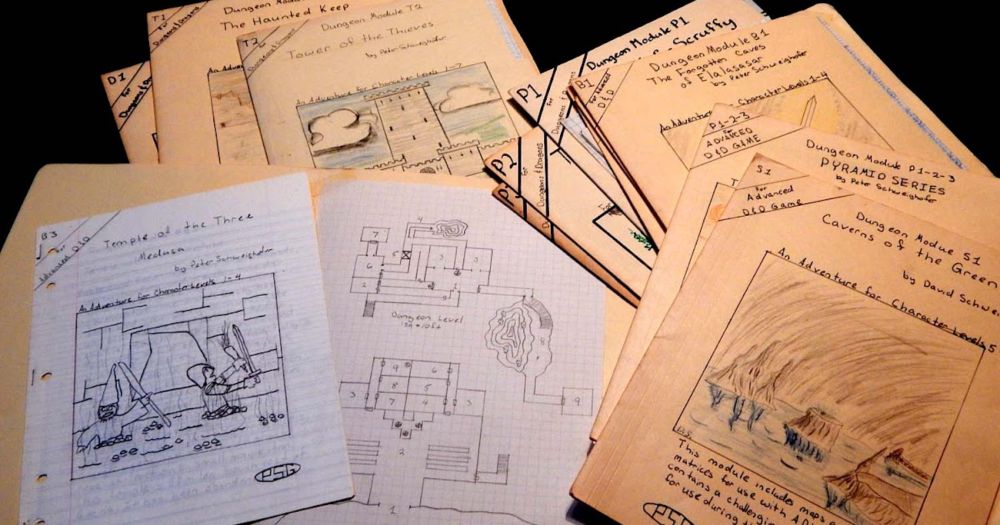 T1
for
Dungeon Module
The Haunted Keep
T2
for
Dungeon Module T2
Tower of the Thieves
by Peter Schweighofer
An Adventure for Character Levels 1-7
D1
for
P1
for
Dungeons &
Dungeon Module P1
-Scruffy
B1
for Advanced
D&D
Dungeon Module B1
The Forgotten Caves
of Elalasasar
by Peter Schweighofer
An Adventure for Character Levels 1-4
P2
for
Dungeons & Dragons
P1-2-3
for
ADVANCED
D&D GAME
Dungeon Module P1-2-3
PYRAMID SERIES
by Peter Schweighofer
S1
for
Advanced
D&D Game
Dungeon Module S1
Caverns of the Green
by David Schwei
An Adventure for Character Levels 5
D.S.
This module includes maps
matrices for use with AD
contains a challenging
for use during
PSG
B3
for
Advanced D&D
Temple of the Three
Medusa
by Peter Schweighofer
An Adventure for Character Levels 1-4
PSG
4
7
5
3
3
6
2
1
2
Dungeon Level
8
9
9
6
8
5
3
7
4
3
2
1